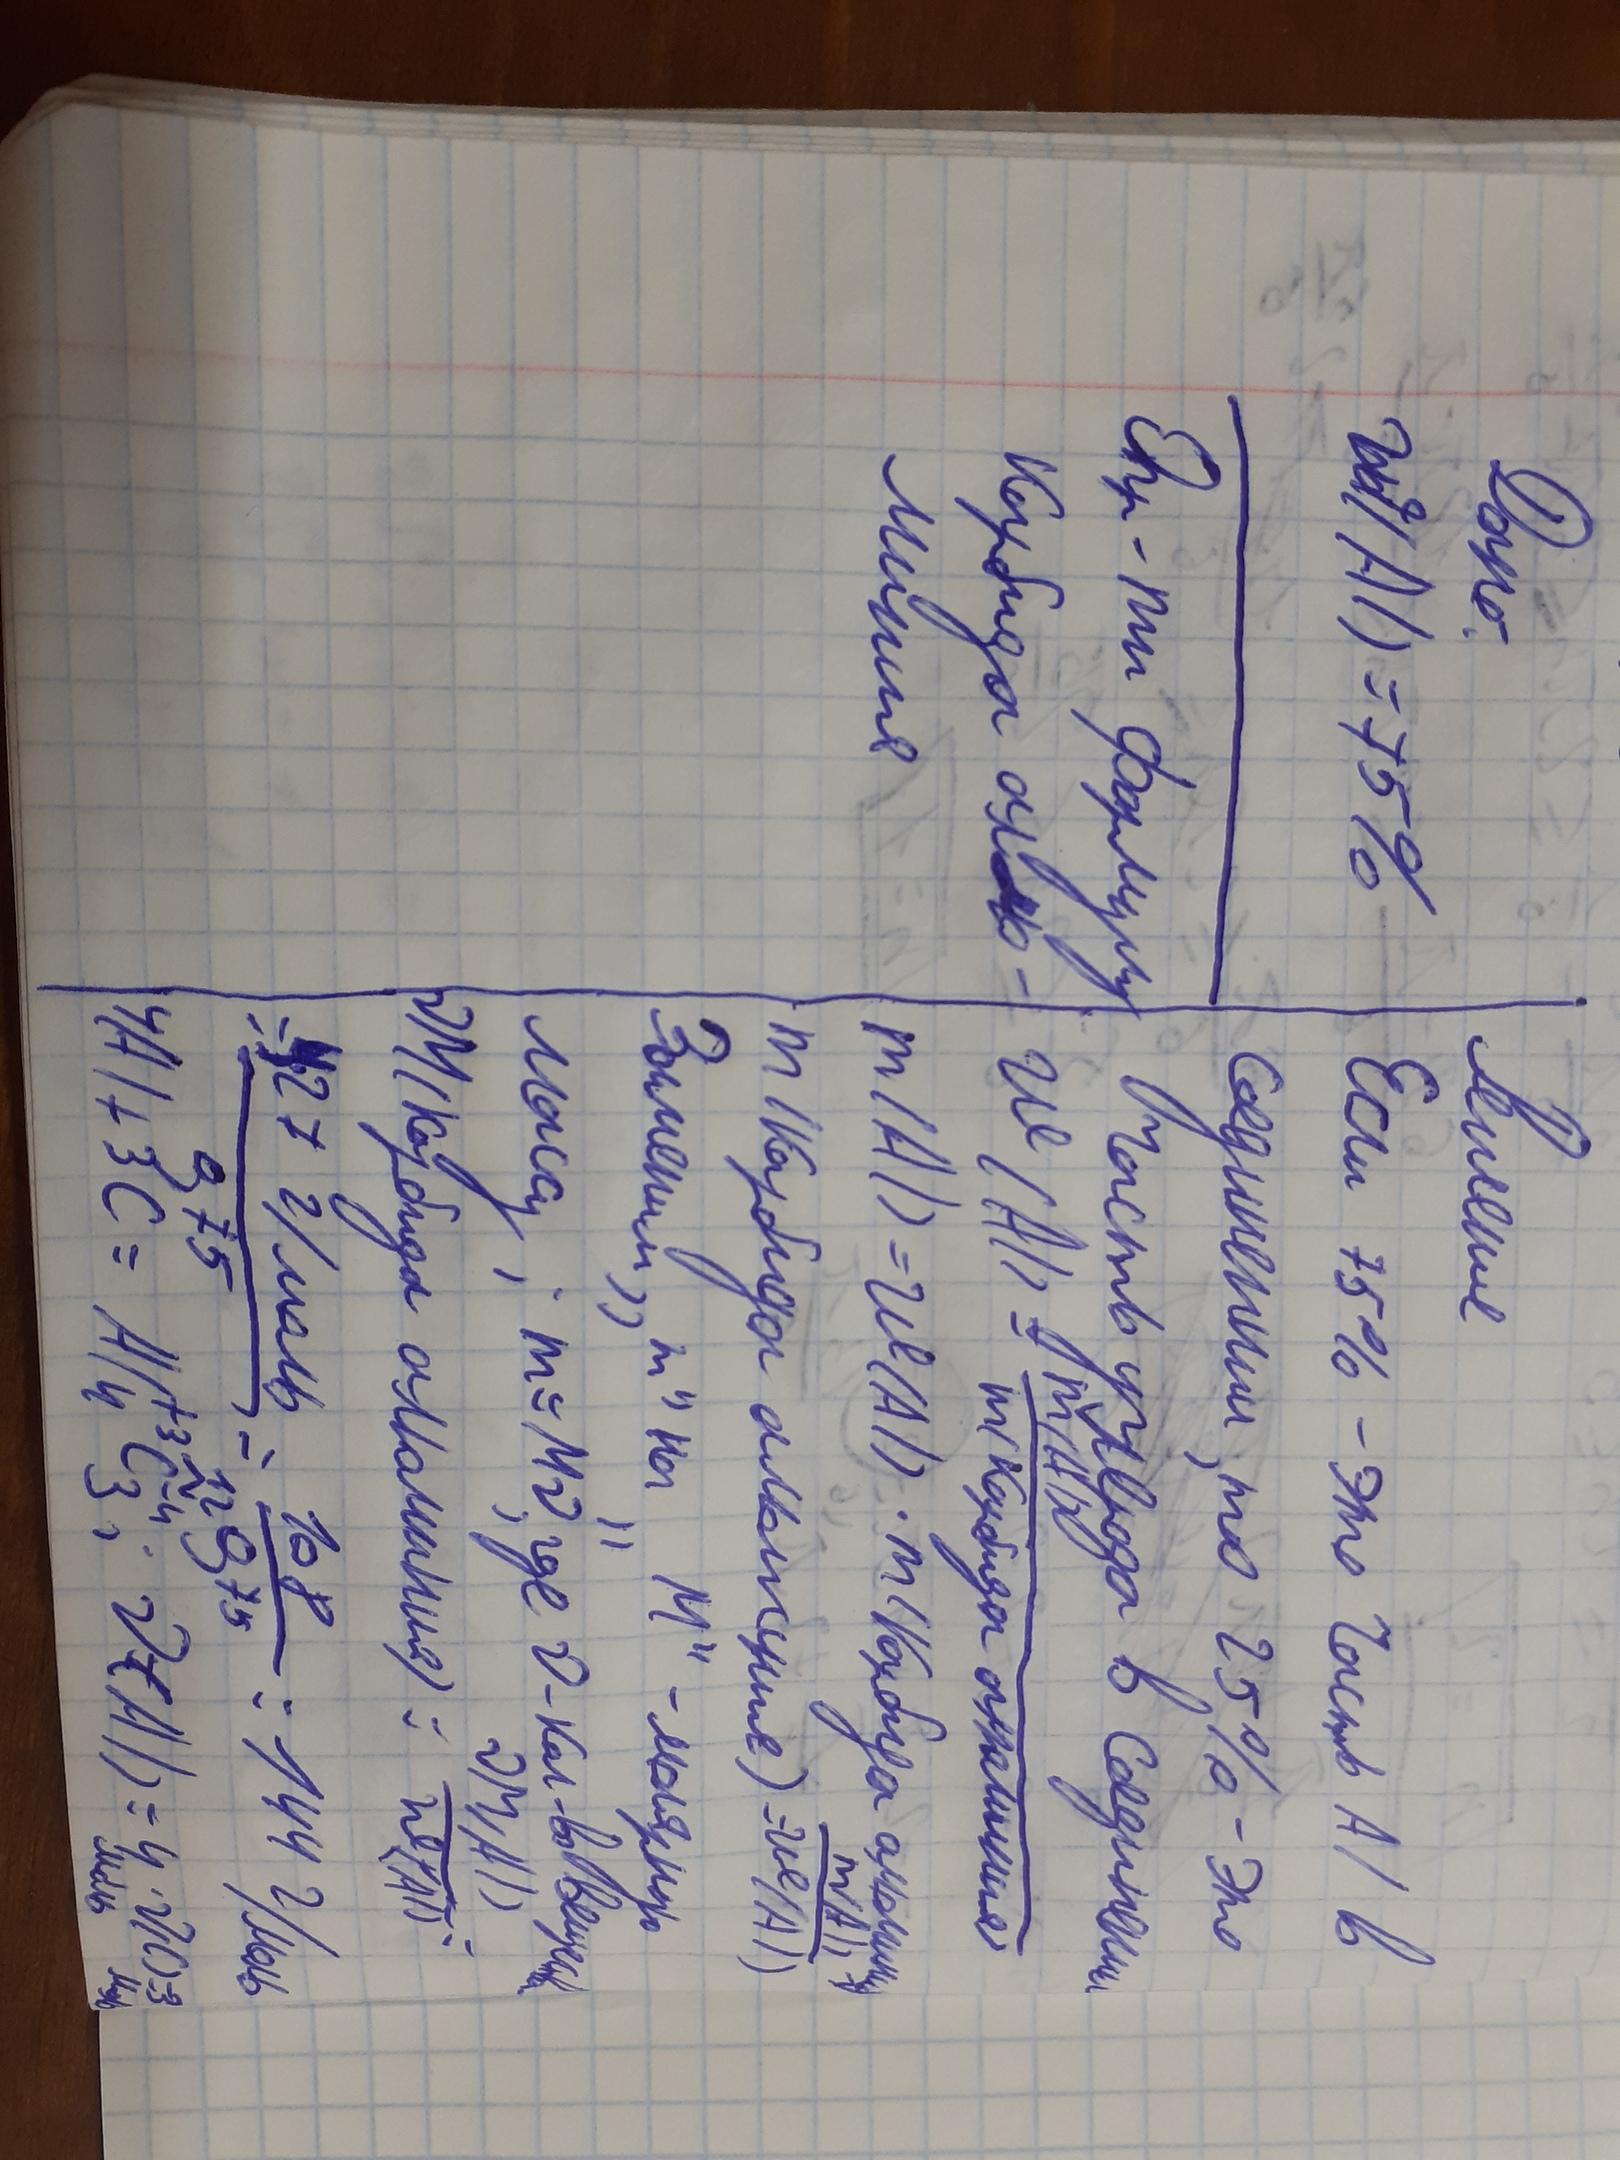 Дано:
W(Al) = 75%
Опр-ти формулу
карбида алю-
миния
Решение
Если 75% - это часть Al в
соединении, то 25% - это
часть углевода в соединении
W(Al) = m(Al) / m(карбида алюминия)
m(Al) = W(Al) · m(карбида алюминия)
m(карбида алюминия) = m(Al) / W(Al)
Заменим "m" на "M" - молярную
массу; m = Mν, где ν - кол-во вещества
νM(карбида алюминия) = νM(Al) / W(Al) =
= 4·27 г/моль / 0,75 = 108 / 0,75 = 144 г/моль
4Al + 3C = Al₄⁺³C₃⁻⁴; ν(Al) = 4 моль ν(C) = 3 моль